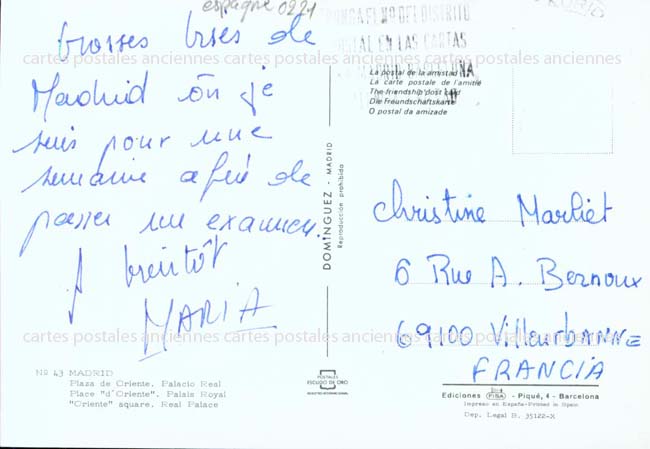 espagne 0221
Grosses bises de
Madrid où je
suis pour une
semaine afin de
passer un examen.
A bientôt
MARIA
PONGA EL Nº DEL DISTRITO
POSTAL EN LAS CARTAS
MADRID BARCELONA
La postal de la amistad
La carte postale de l'amitié
The friendship post card
Die Freundschaftskarte
O postal da amizade
DOMINGUEZ - MADRID
Reproducción prohibida
Christine Marliet
6 Rue A. Bernoux
69100 VilleurbANNE
FRANCIA
cartes postales anciennes cartes postales anciennes cartes postales anciennes
cartes postales anciennes cartes postales anciennes cartes postales anciennes
Nº 43 MADRID
Plaza de Oriente. Palacio Real
Place "d'Oriente". Palais Royal
"Oriente" square. Real Palace
POSTALES
ESCUDO DE ORO
REGISTRO INTERNACIONAL
Ediciones FISA - Piqué, 4 - Barcelona
Impreso en España-Printed in Spain
Dep. Legal B. 35122-X